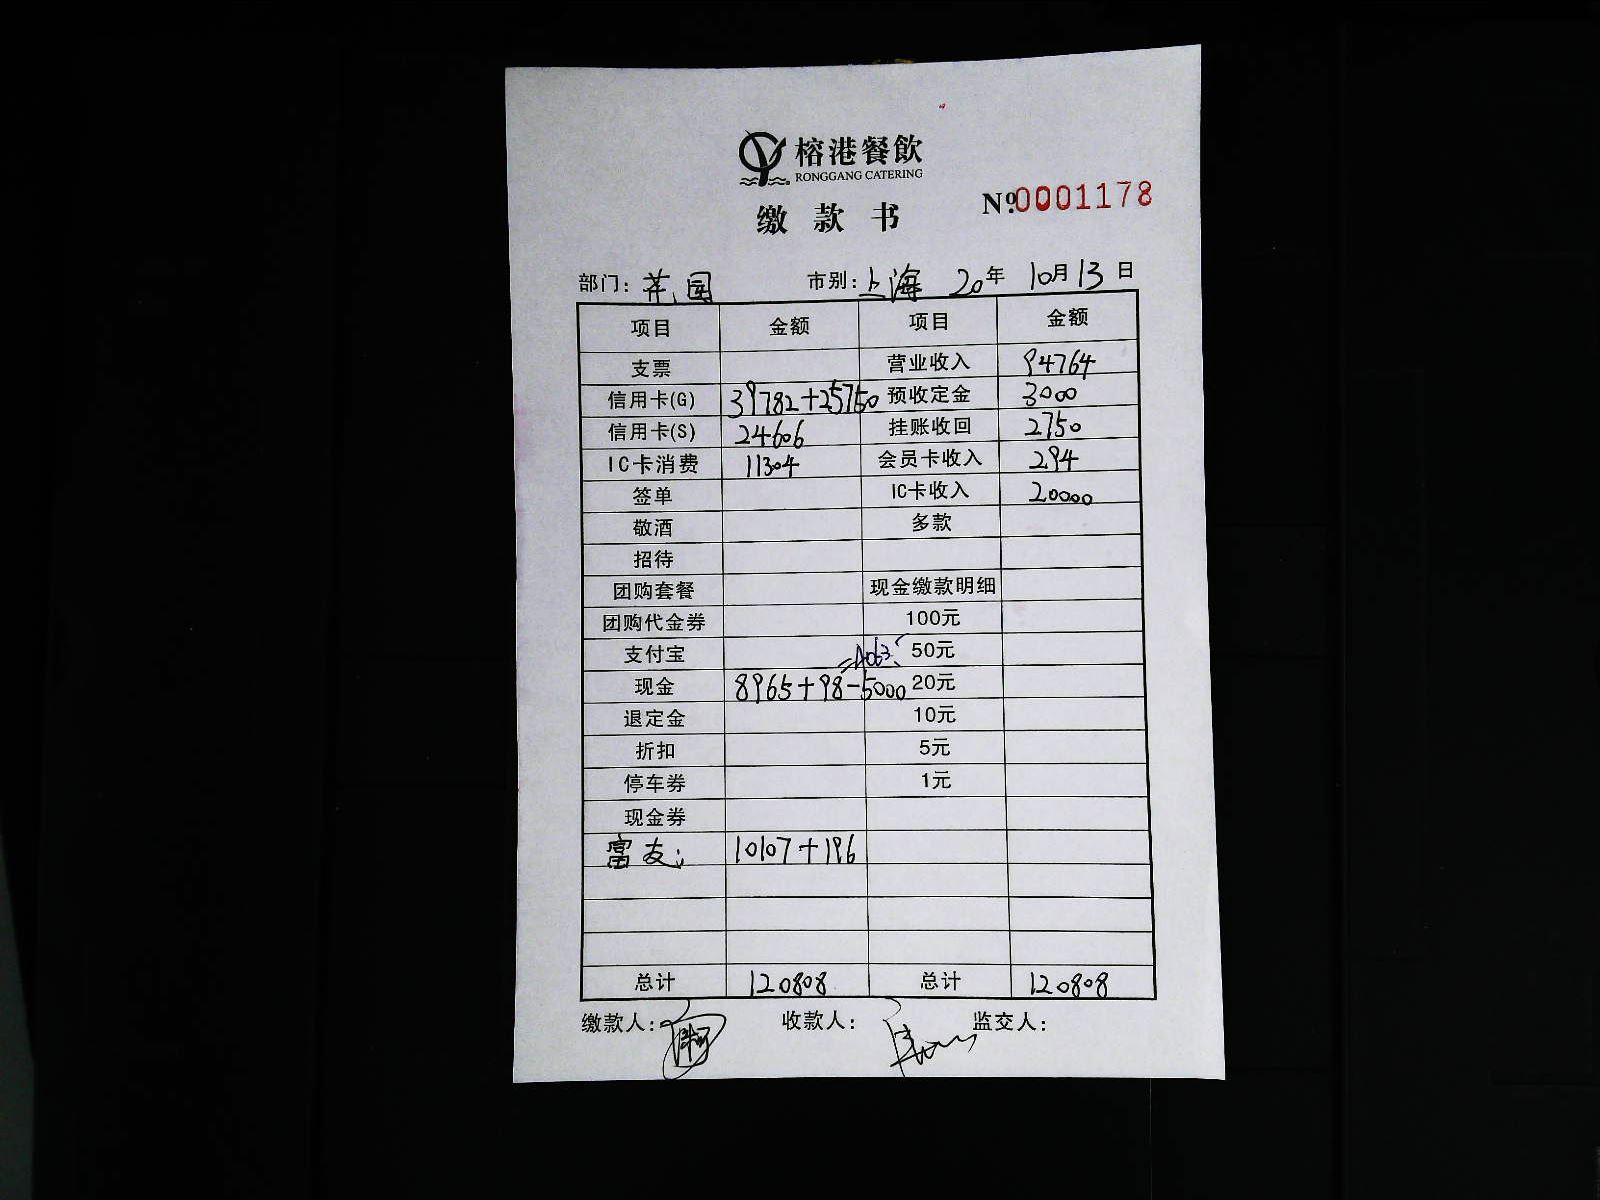 榕港餐飲
RONGGANG CATERING
缴款书 Nº.0001178
部门: 花园 市别: 上海 20年 10月13日
项目 金额 项目 金额
支票 营业收入 94764
信用卡(G) 39782+25750 预收定金 3000
信用卡(S) 24606 挂账收回 2750
IC卡消费 11304 会员卡收入 294
签单 IC卡收入 20000
敬酒 多款
招待
团购套餐 现金缴款明细
团购代金券 100元
支付宝 =4063 50元
现金 8965+98-5000 20元
退定金 10元
折扣 5元
停车券 1元
现金券
富友: 10107+196
总计 120808 总计 120808
缴款人: 收款人: 监交人: